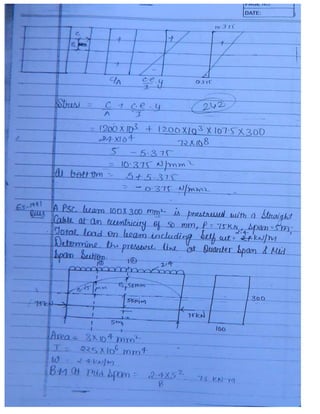 DATE:
10.375
C/A
Ce/I y
0.375
Stress = C/A + Ce/I · y
242
= 1200×10³ + 1200×10³×107.5×300
24×10⁴ 72×10⁸
5 - 5.375
= 10.375 N/mm²
At bottom = 5 + 5.375
= -0.375 N/mm²
A Psc beam 100×300 mm² is prestressed with a straight
Cable at an eccentricity of 50 mm, P = 75KN, span = 5m,
Total load on beam including self wt = 2.4 KN/m
Determine the pressure line at Quarter Span & Mid
Span Section.
2.4
50mm
75KN
75KN
300
5m
100
Area = 3×10⁴ mm²
I = 225×10⁶ mm⁴
W = 2.4 KN/m
B·M at Mid Span = 2.4×5²
8